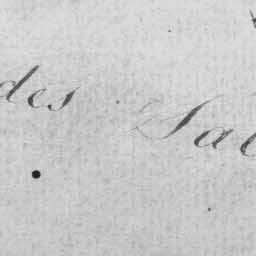 des Sal